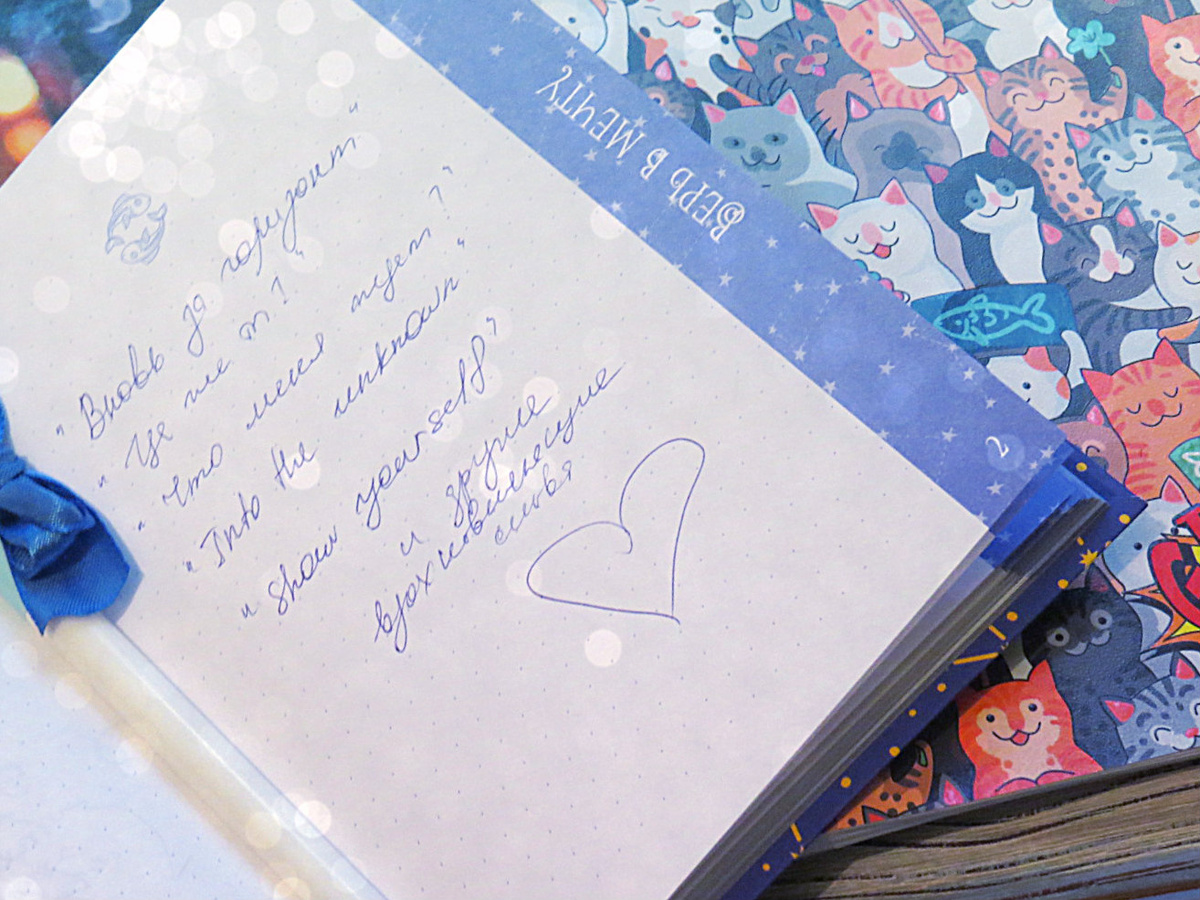 ВЕРЬ В МЕЧТУ
"Вновь за горизонт"
"Что меня ждет ?"
"Into the unknown"
"Show yourself"
и другие
вдохновляющие
слова
2